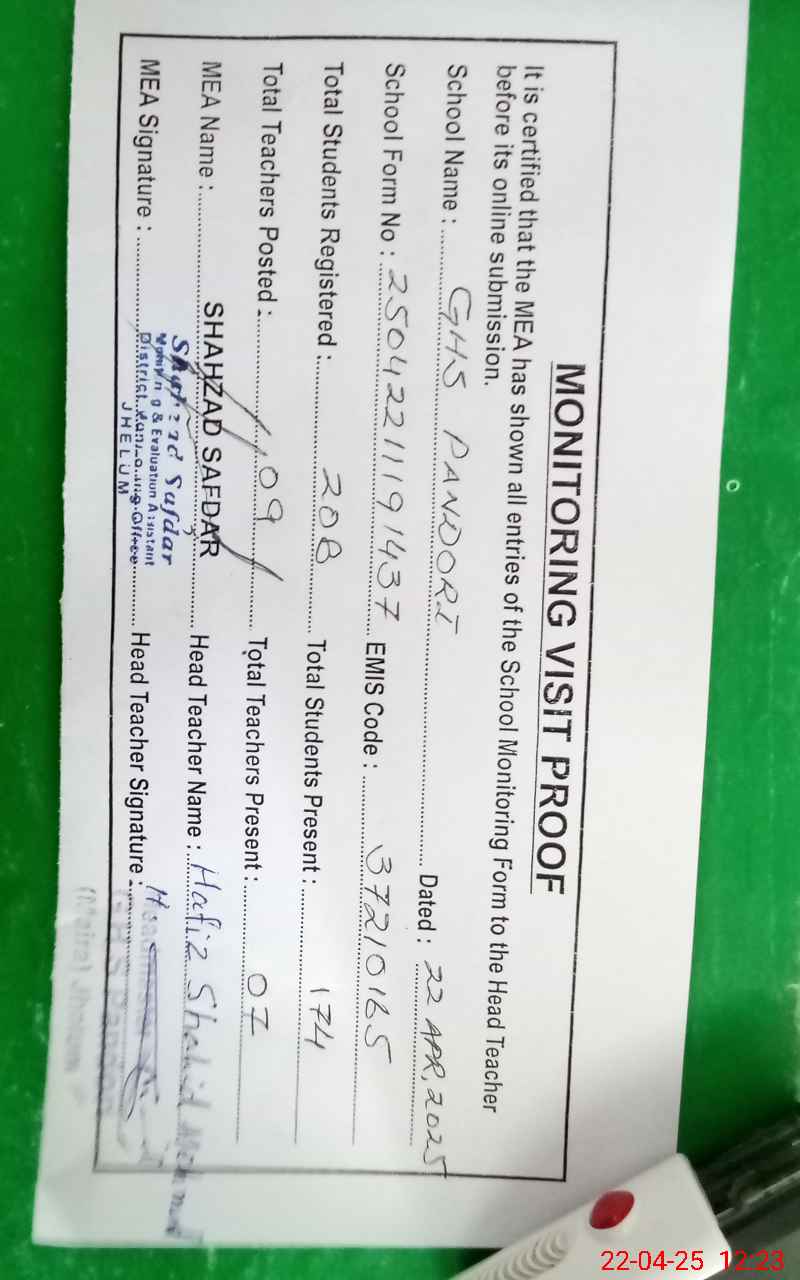 MONITORING VISIT PROOF
It is certified that the MEA has shown all entries of the School Monitoring Form to the Head Teacher
before its online submission.
School Name : GHS PANDORI Dated : 22 APR, 2025
School Form No : 25042211191437 EMIS Code : 37210165
Total Students Registered : 208 Total Students Present : 174
Total Teachers Posted : 09 Total Teachers Present : 07
MEA Name : SHAHZAD SAFDAR Head Teacher Name : Hafiz Shahid
MEA Signature : Head Teacher Signature :
Shahzad Safdar
Monitoring & Evaluation Assistant
District Monitoring Office
JHELUM
22-04-25 12:23